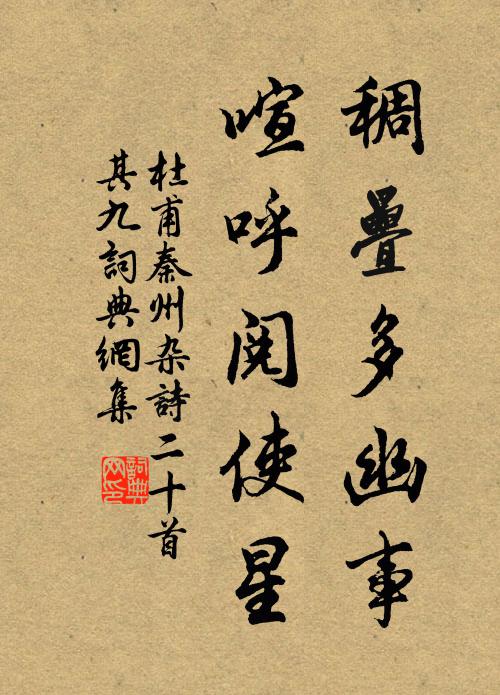 稠疊多幽事
喧呼閱使星
杜甫秦州杂詩二十首
其九詞典網集
詞典
网印